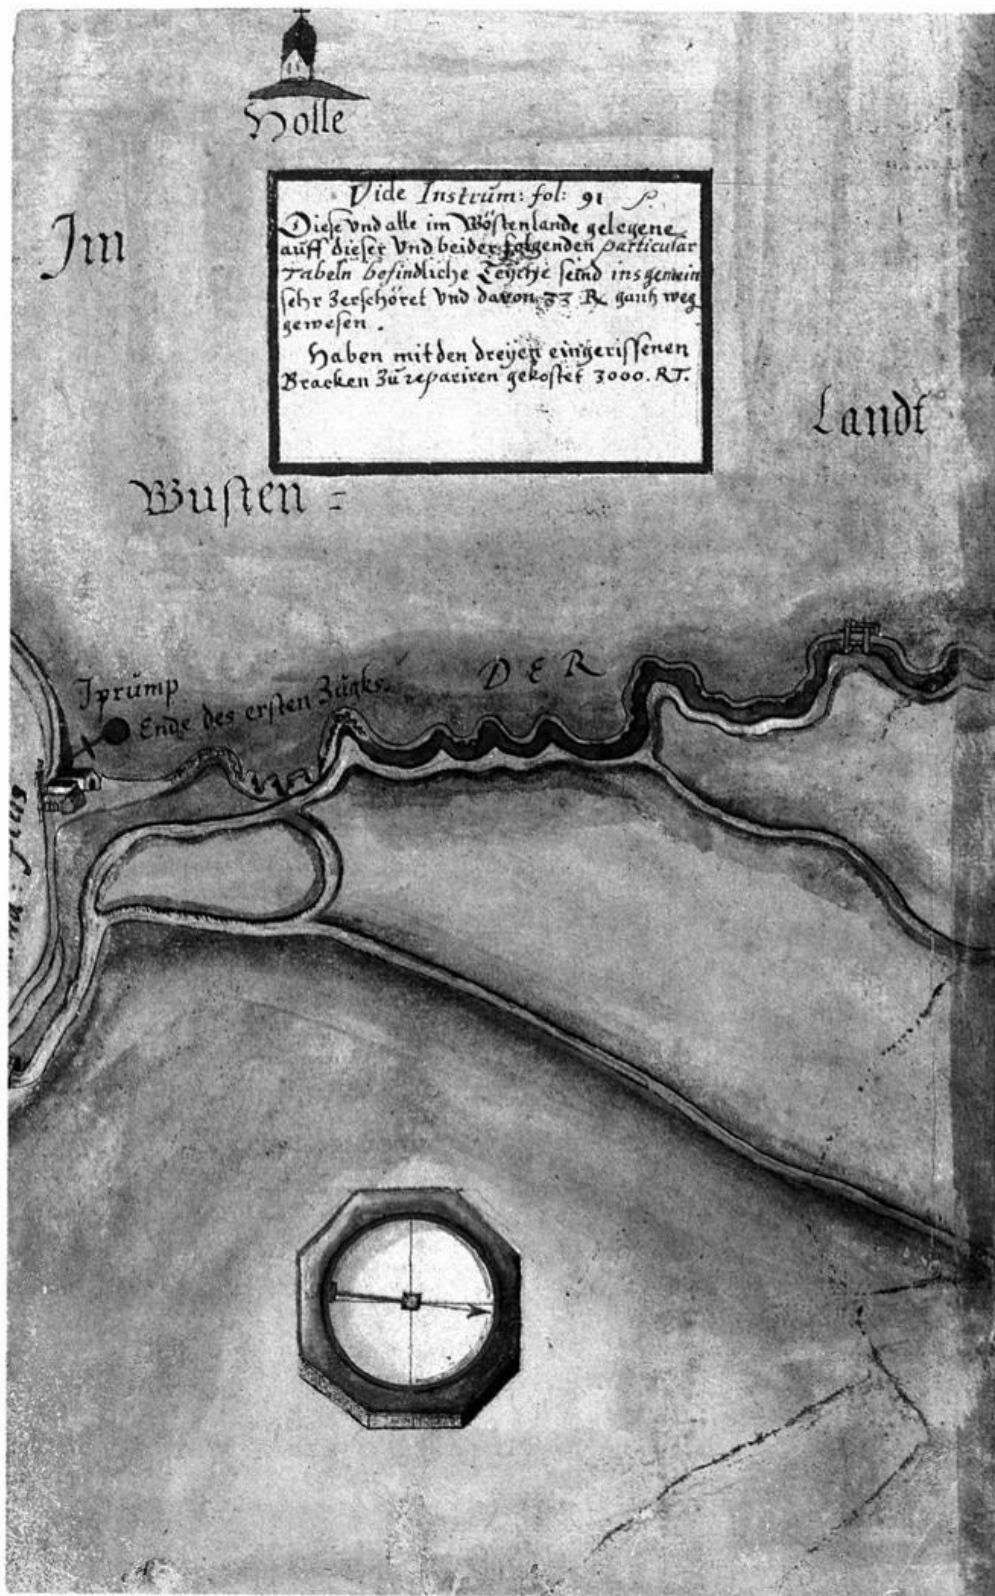 Holle
Vide Instrum: fol: 91
Diese Vnd alle im Wöstenlande gelegene
auff dieser Vnd beider folgenden particular
Tabeln befindliche Teyche seind ins gemein
sehr Zerschöret Vnd davon 33 R. gantz weg
gewesen.
Haben mit den dreyen eingerissenen
Bracken Zu repariren gekostet 3000. RT.
Im
Wusten =
Landt
DER
Iprump
Ende des ersten Zugks.